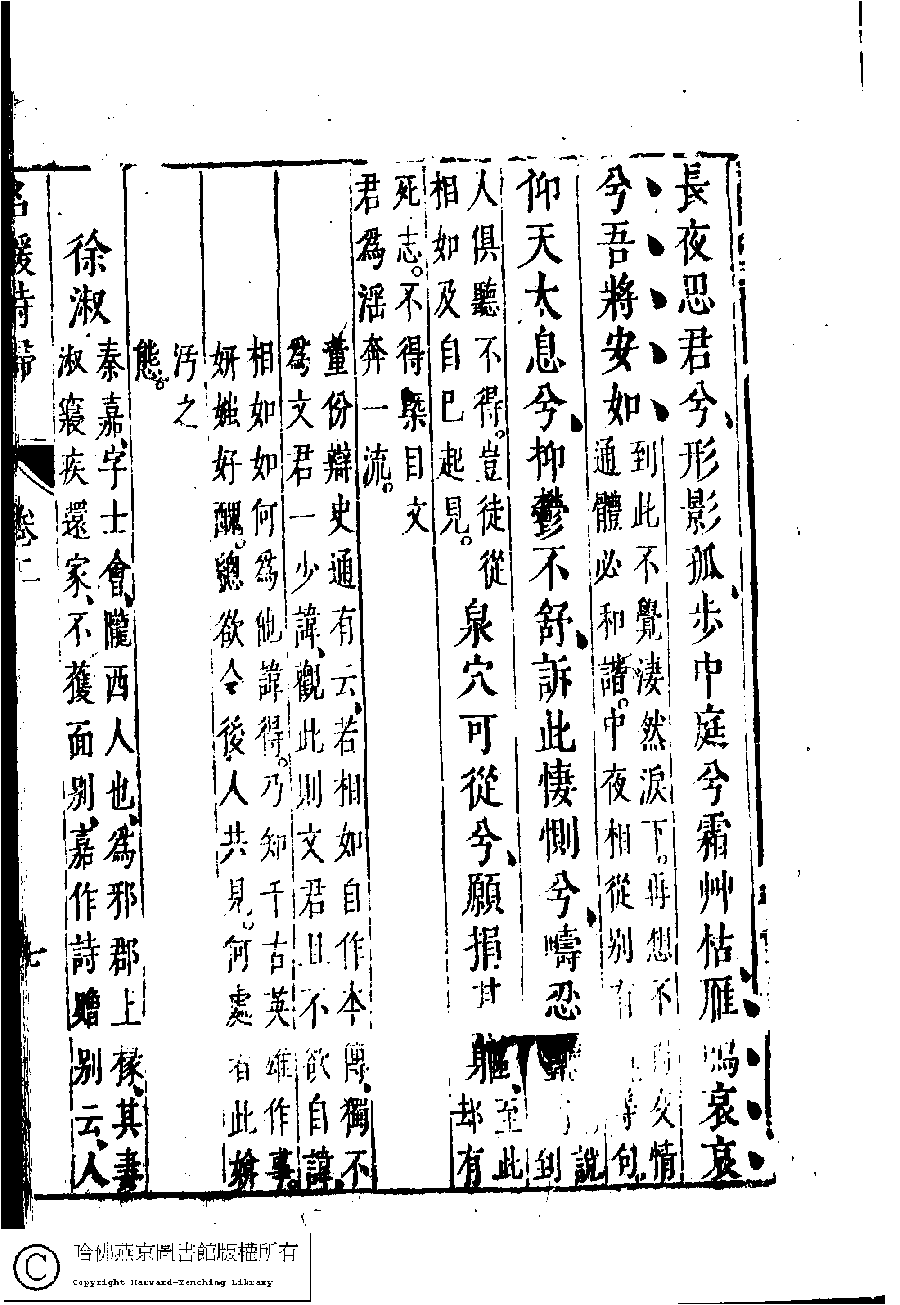 長夜思君兮、形影孤、步中庭兮霜艸枯雁鳴哀哀
兮吾將安如
到此不覺淒然淚下。再想不女情
通體必和諧。中夜相從别有句
仰天太息兮、抑鬱不舒、訴此悽惻兮、疇忍
說
到
人俱聽不得。豈徒從
相如及自己起見。
泉穴可從兮、願捐其軀、
至此
却有
死志。不得槩目文
君為淫奔一流。
董份辯史通有云、若相如自作本傳、獨不
為文君一少諱、觀此則文君且不欲自諱、
相如如何為他諱得。乃知千古英雄作事。
妍媸好醜。總欲令後人共見。何處有此
沔之
態。
徐淑
秦嘉、字士會、隴西人也、為邪郡上椽、其妻
淑寢疾還家、不獲面别、嘉作詩贈别云、人
名媛詩歸
卷二
七
哈佛燕京圖書館版權所有
Copyright Harvard-Yenching Library